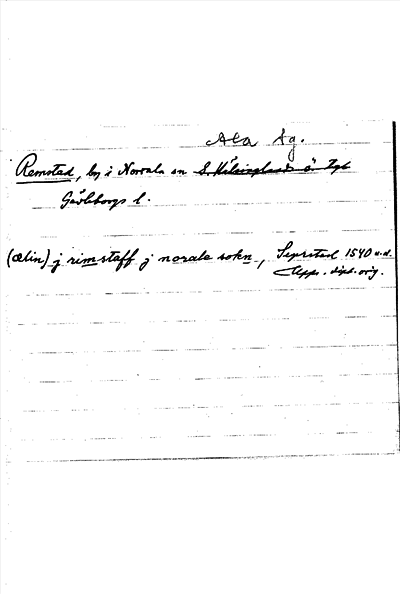 Ala tg.
Remstad, by i Norrala sn S. Hälsinglands ö. tgl
Gävleborgs l.
(ælin) j rimstaff j norale sokn, Seprsted 1540 u.d.
Upps. dipl. orig.